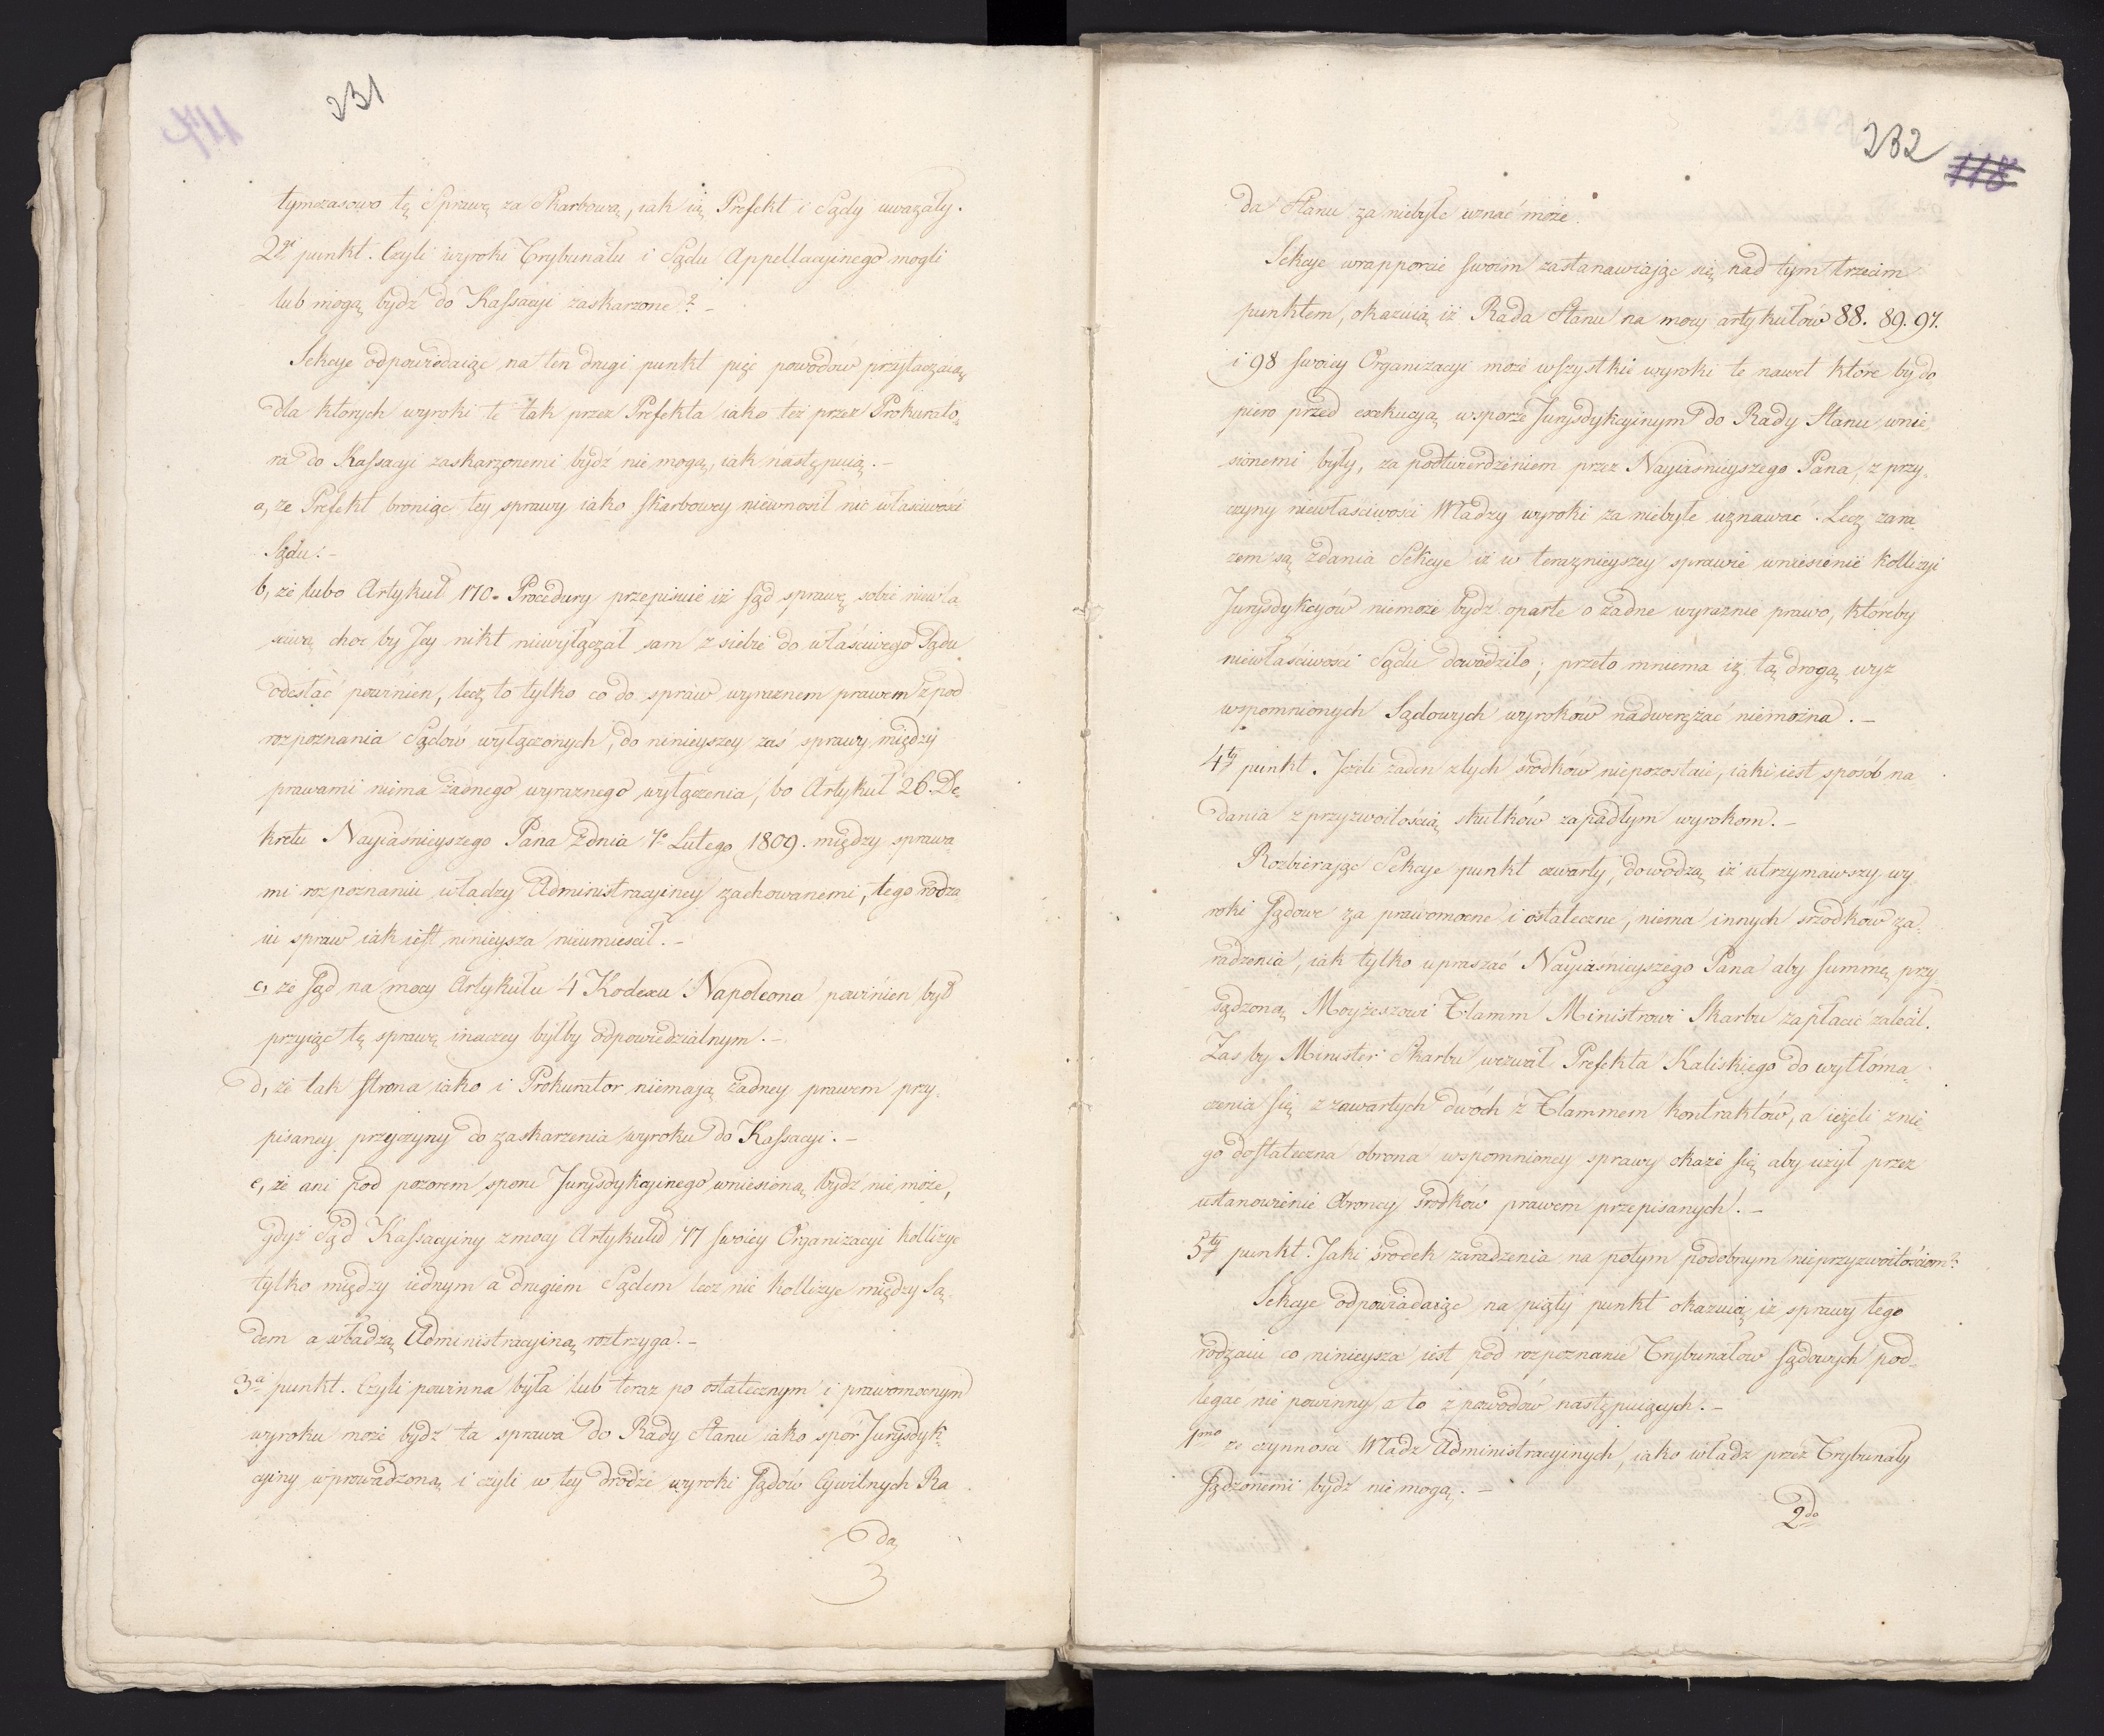 231
117
tymczasowo tę Sprawę za Skarbową, iak ią Prefekt i Sądy uważały.
2gi punkt. Czyli wyroki Trybunału i Sądu Appellacyinego mogli
lub mogą bydź do Kassacyi zaskarżone? –
Sekcye odpowiadaiąc na ten drugi punkt pięć powodów przytaczaią
dla których wyroki te tak przez Prefekta iako też przez Prokurato,
ra do Kassacyi zaskarżonemi bydź nie mogą, iak następuią. –
a, że Prefekt broniąc tey sprawy iako skarbowey niewnosił nie właściwości
Sądu: –
b, że lubo Artykuł 170. Procedury przepisuie iż sąd sprawę sobie niewła
ściwą choć by Jey nikt niewyłączał sam z siebie do właściwego Sądu
odesłać powinien, lecz to tylko co do spraw wyraznem prawem z pod
rozpoznania Sądów wyłączonych, do ninieyszey zaś sprawy między
prawami niema żadnego wyraznego wyłączenia, bo Artykuł 26. De,
kretu Nayiaśnieyszego Pana z dnia 7o Lutego 1809. między sprawa
mi rozpoznaniu władzy Administracyiney zachowanemi, tego rodza
iu spraw iak iest ninieysza nieumieścił. –
c, że sąd na mocy Artykułu 4 Kodexu Napoleona powinien był
przyiąć tę sprawę inaczey byłby odpowiedzialnym. –
d, że tak strona iako i Prokurator niemaią żadney prawem przy,
pisaney przyczyny do zaskarżenia wyroku do Kassacyi. –
e, że ani pod pozorem sporu Jurysdykcyinego wniesioną bydź nie może,
gdyż Sąd Kassacyiny z mocy Artykułu 77 swoiey Organizacyi kollizye
tylko między iednym a drugiem Sądem lecz nie kollizye między Są,
dem a władzą Administracyiną roztrzyga. –
3ci punkt. Czyli powinna była lub teraz po ostatecznym i prawomocnym
wyroku może bydź ta sprawa do Rady Stanu iako spór Jurysdyk,
cyiny wprowadzoną i czyli w tey drodze wyroki Sądów Cywilnych Ra
da
232
118
da Stanu za niebyłe uznać może.
Sekcye w rapporcie swoim zastanawiaiąc się nad tym trzecim
punktem, okazuią iż Rada Stanu na mocy artykułów 88. 89. 97.
i 98 swoiey Organizacyi może wszystkie wyroki te nawet które by do
piero przed exekucyą w sporze Jurysdykcyinym do Rady Stanu wnie,
sionemi były, za podtwierdzeniem przez Nayiaśnieyszego Pana, z przy,
czyny niewłaściwości Władzy wyroki za niebyłe uznawać. Lecz zara
zem są zdania Sekcye iż w teraznieyszey sprawie wniesienie kollizyi
Jurysdykcyów niemoże bydź oparte o żadne wyraznie prawo, któreby
niewłaściwości Sądu dowodziło; przeto mniema iż tą drogą wyż
wspomnionych Sądowych wyroków nadwerężać niemożna. –
4ty punkt. Jeżeli żaden z tych środków niepozostaie, iaki iest sposób na
dania z przyzwoitością skutków zapadłym wyrokom. –
Rozbieraiąc Sekcye punkt czwarty, dowodzą iż utrzymawszy wy
roki sądowe za prawomocne i ostateczne, niema innych srzodków za,
radzenia, iak tylko upraszać Nayiaśnieyszego Pana aby summę przy
sądzoną Moyżeszowi Tlamm Ministrowi Skarbu zapłacić zalecił.
Zas by Minister Skarbu wezwał Prefekta Kaliskiego do wytłóma,
czenia się z zawartych dwóch z Tlammem kontraktów, a ieżeli z nie
go dostateczna obrona wspomnioney sprawy okaże się aby użył przez
ustanowienie Obroncy srodków prawem przepisanych. –
5ty punkt. Jaki srodek zaradzenia na potym podobnym nieprzyzwoitościom?
Sekcye odpowiadaiąc na piąty punkt okazuią iż sprawy tego
rodzaiu co ninieysza iest pod rozpoznanie Trybunałow sądowych pod,
legać nie powinny a to z powodów następuiących. –
1mo że czynnosci Władz Administracyinych, iako władz przez Trybunały
sądzonemi bydź nie mogą. –
2do